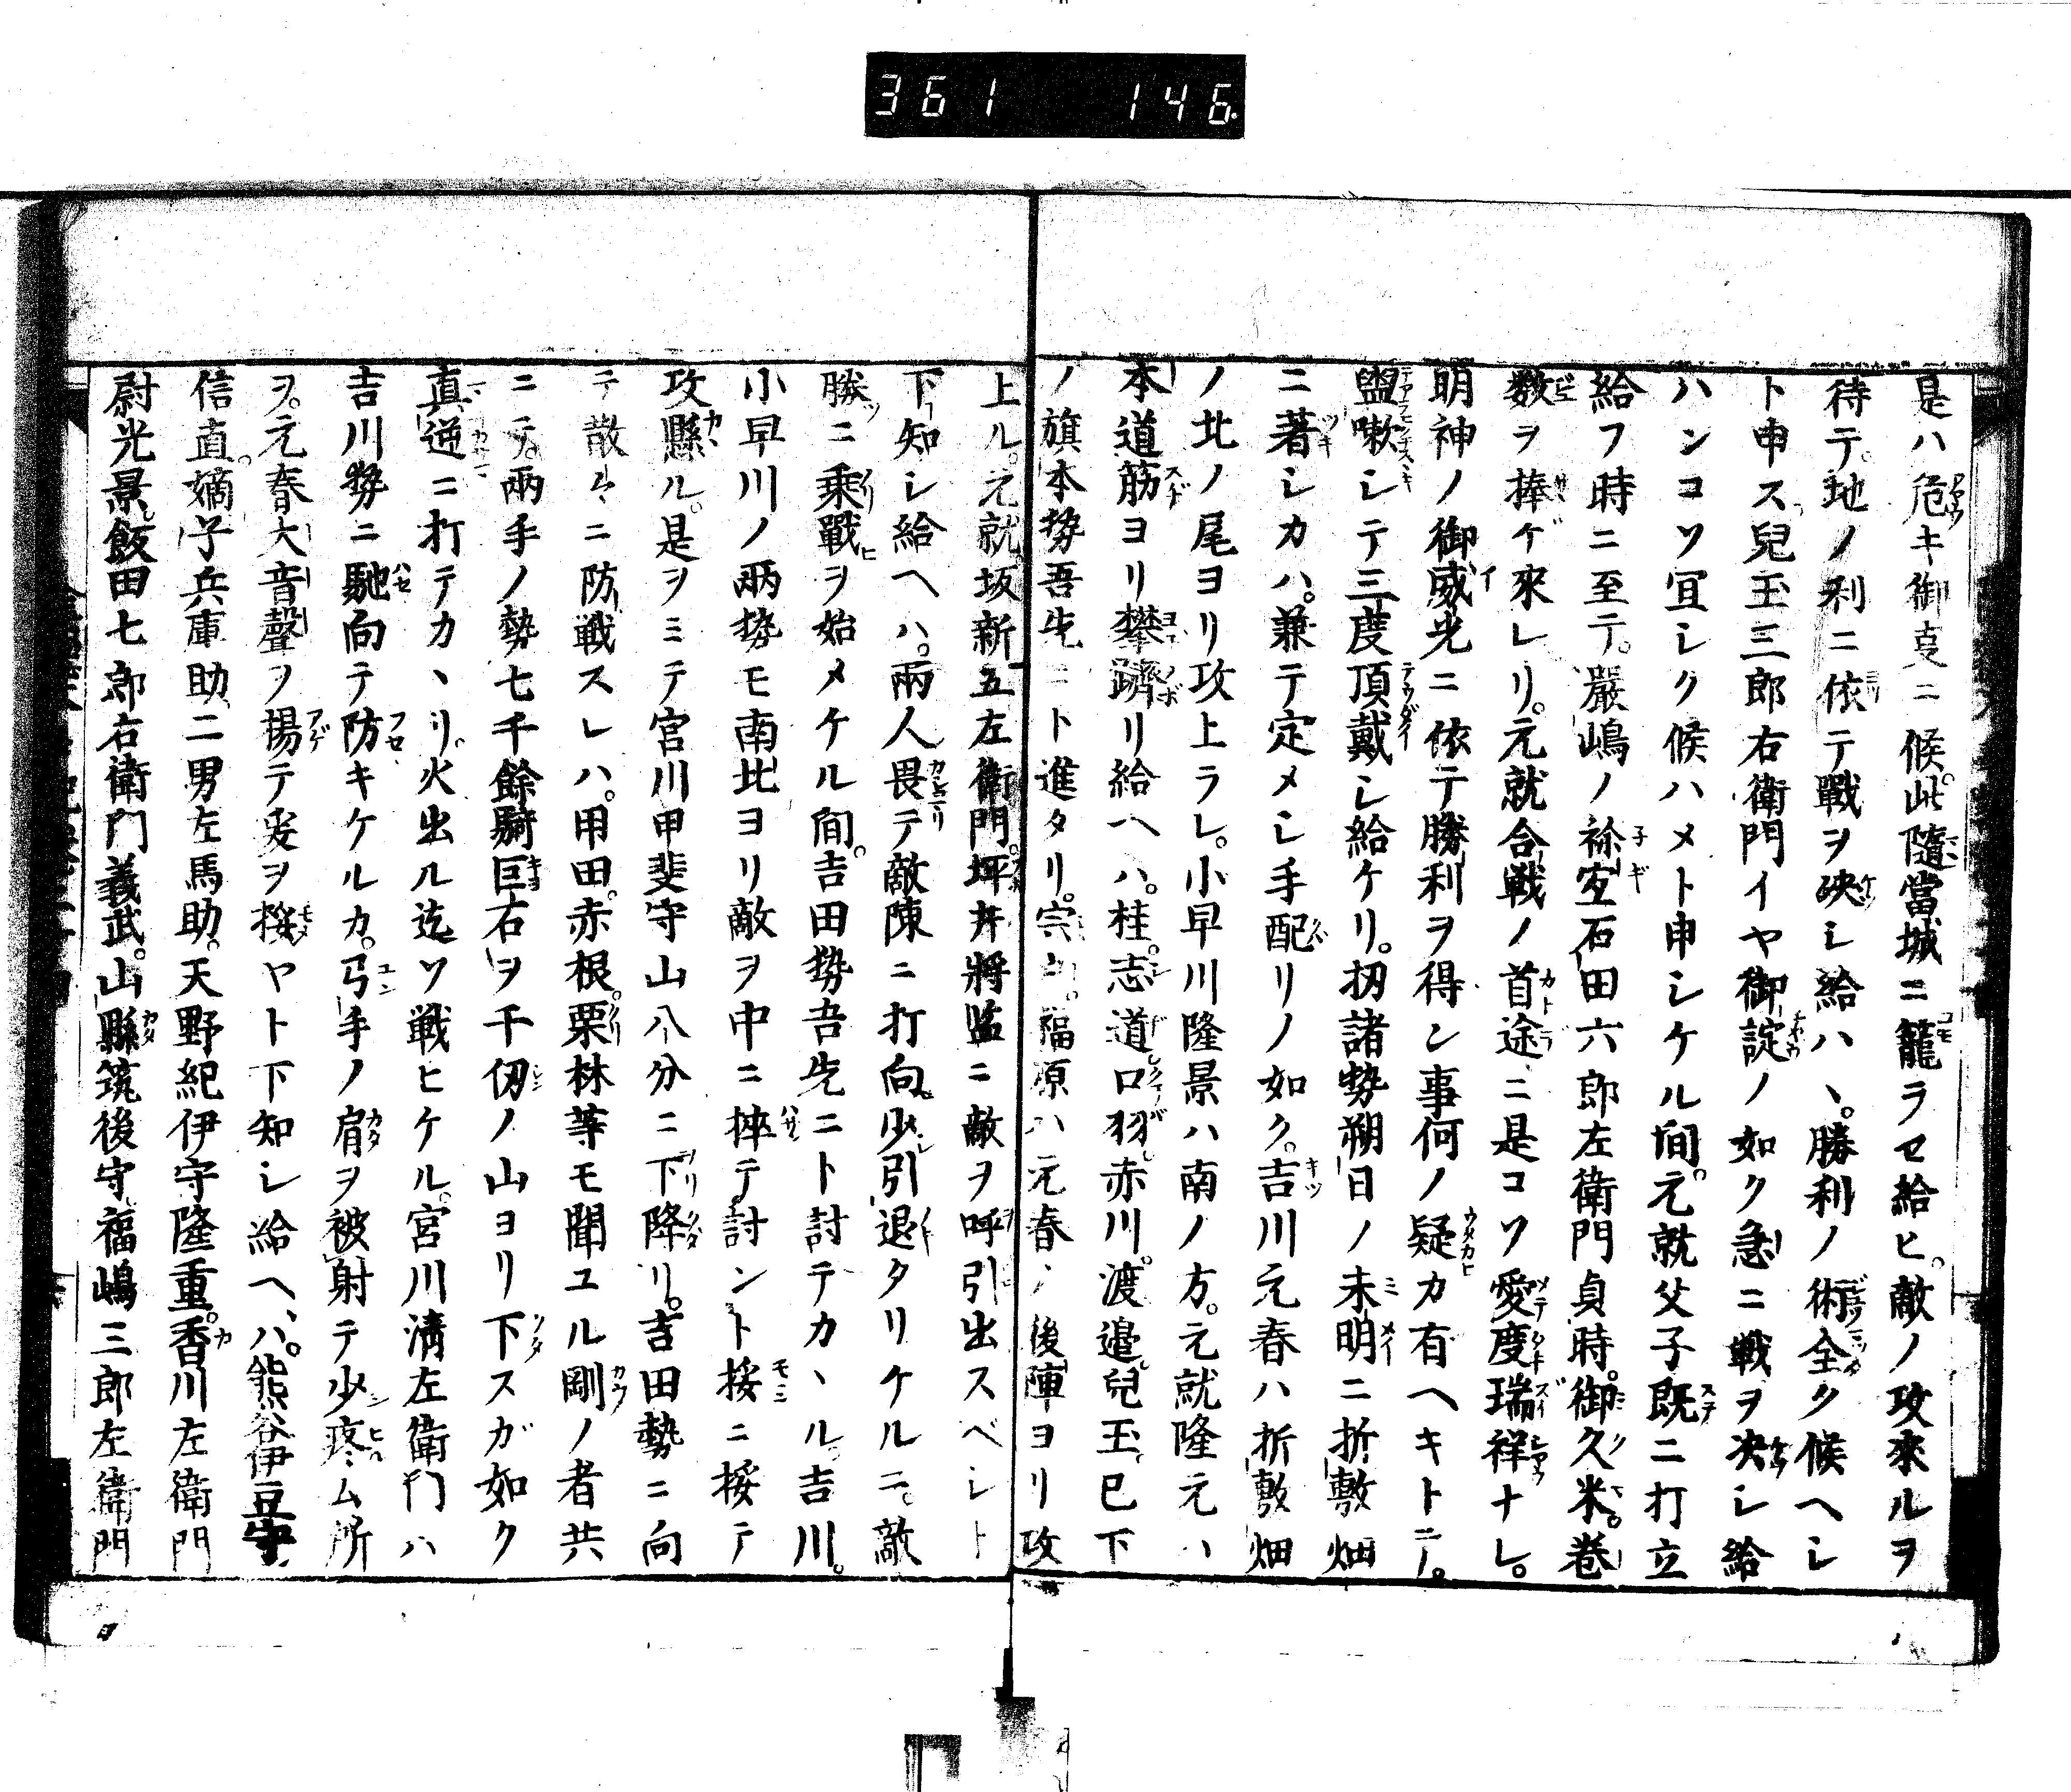 361 146
是ハ危キ御事ニ候。此隨當城ニ籠ラセ給ヒ。敵ノ攻來ルヲ
待テ。地ノ利ニ依テ戰ヲ决シ給ハヽ。勝利ノ術全ク候ヘシ
ト申ス兒玉三郎右衛門イヤ御諚ノ如ク急ニ戰ヲ决シ給
ハンコソ宜シク候ハメト申シケル間。元就父子既ニ打立
給フ時ニ至テ。嚴嶋ノ祢宜石田六郎左衛門貞時。御久米。巻
数ヲ捧ゲ來レリ。元就合戰ノ首途ニ是コソ愛度瑞祥ナレ。
明神ノ御威光ニ依テ勝利ヲ得ン事何ノ疑カ有ヘキトテ。
盥嗽シテ三度頂戴シ給ケリ。扨諸勢朔日ノ未明ニ折敷畑
ニ著シカハ。兼テ定メシ手配リノ如ク。吉川元春ハ折敷畑
ノ北ノ尾ヨリ攻上ラレ。小早川隆景ハ南ノ方。元就隆元ハ
本道筋ヨリ攀躋リ給ヘハ。桂。志道口羽。赤川。渡邉。兒玉已下
ノ旗本勢吾先ニト進タリ。宗戸。福原ハ元春ノ後陣ヨリ攻
上ル。元就。坂新五左衛門。坪井將監ニ敵ヲ呼引出スベシト
下知シ給ヘハ。兩人畏テ敵陳ニ打向。少引退タリケルニ。敵
勝ニ乗戰ヲ始メケル間。吉田勢吾先ニト討テカヽル。吉川。
小早川ノ兩勢モ南北ヨリ敵ヲ中ニ捽テ討ント挼ニ挼テ
攻縣ル。是ヲミテ宮川甲斐守山八分ニ下降リ。吉田勢ニ向
テ散々ニ防戰スレハ。用田。赤根。栗林等モ聞ユル剛ノ者共
ニテ。兩手ノ勢七千餘騎巨石ヲ千仞ノ山ヨリ下スガ如ク
真逆ニ打テカヽリ。火出ル迄ソ戰ヒケル。宮川淸左衛門ハ
吉川勢ニ馳向テ防キケルカ。弓手ノ肩ヲ被射テ少疼ム所
ヲ。元春大音聲ヲ揚テ爰ヲ挼ヤト下知シ給ヘハ。熊谷伊豆守
信直。嫡子兵庫助二男左馬助。天野紀伊守隆重。香川左衛門
尉光景。飯田七郎右衛門義武。山縣筑後守。福嶋三郎左衛門